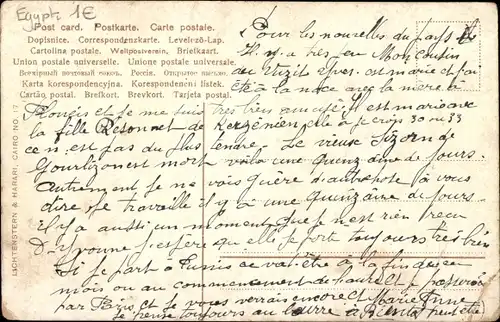 Egypt. 1E
Post card. Postkarte. Carte postale.
Dopisnice. Correspondenzkarte. Levelező-Lap.
Cartolina postale. Weltpostverein. Briefkaart.
Union postale universelle. Unione postale universale.
Всемірный почтовый союзъ. Россія. Открытое письмо.
Karta korespondencyjna. Korespondenční lístek.
Cartão postal. Brefkort. Brevkort. Tarjeta postal.
LICHTENSTERN & HARARI, CAIRO NO. 117
Pour les nouvelles du pays
Il n'y a très peu Mon Coutin
du Vizit Yves est marié et j'ai
été à la noce avec la mère à
et je me suis très bien amusé Il est marié avec
la fille de Kergénien elle a je crois 30 ou 33
ce n'est pas du plus tendre. Le vieux
mort voilà une quinzaine de jours.
Autrement je ne vois guère d'autre chose à vous
dire je travaille il y a une quinzaine de jours
il y a aussi un moment que je n'est rien recu
D'Yvonne j'espère qu'elle se porte toujours très bien
Si je part à Tunis ce vat être à la fin de ce
mois ou au commencement de l'autre et je passerai
par et je vous verrais encore et Marie Anne
je pense toujours au beurre peut être